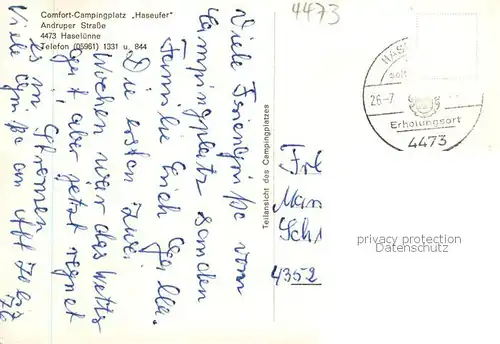 4473
Comfort-Campingplatz „Haseufer"
Andruper Straße
4473 Haselünne
Telefon (05961) 1331 u. 844
Viele Feriengrüße vom
Campingplatz senden
Familie Erich
Die ersten zwei
Wochen war das Wetter
gut, aber jetzt regnet
es in Strömen
Viele Grüße an
Teilansicht des Campingplatzes
HAS
seit
26.-7
Erholungsort
4473
Frl
Mar
Sch
4352
privacy protection
Datenschutz